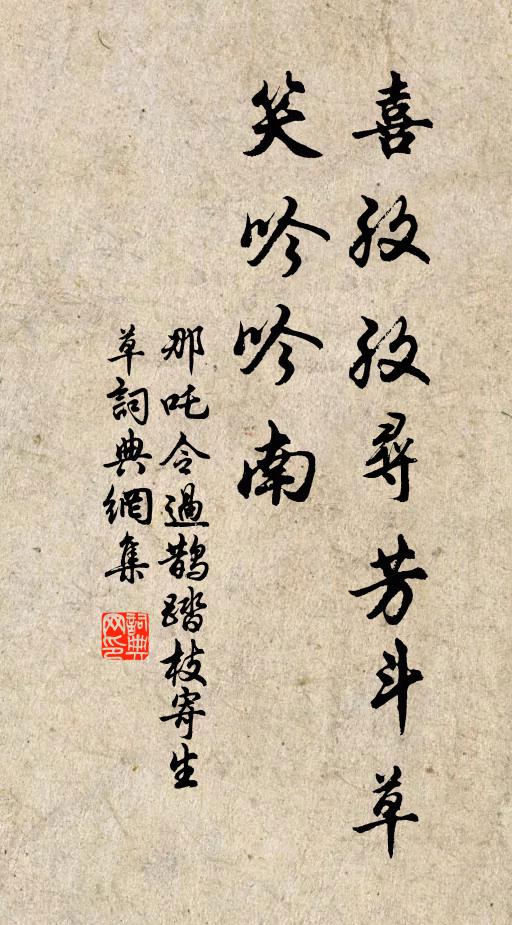 喜孜孜尋芳斗草
笑吟吟南
那吒令過鵲踏枝寄生
草詞典網集
詞典
网印